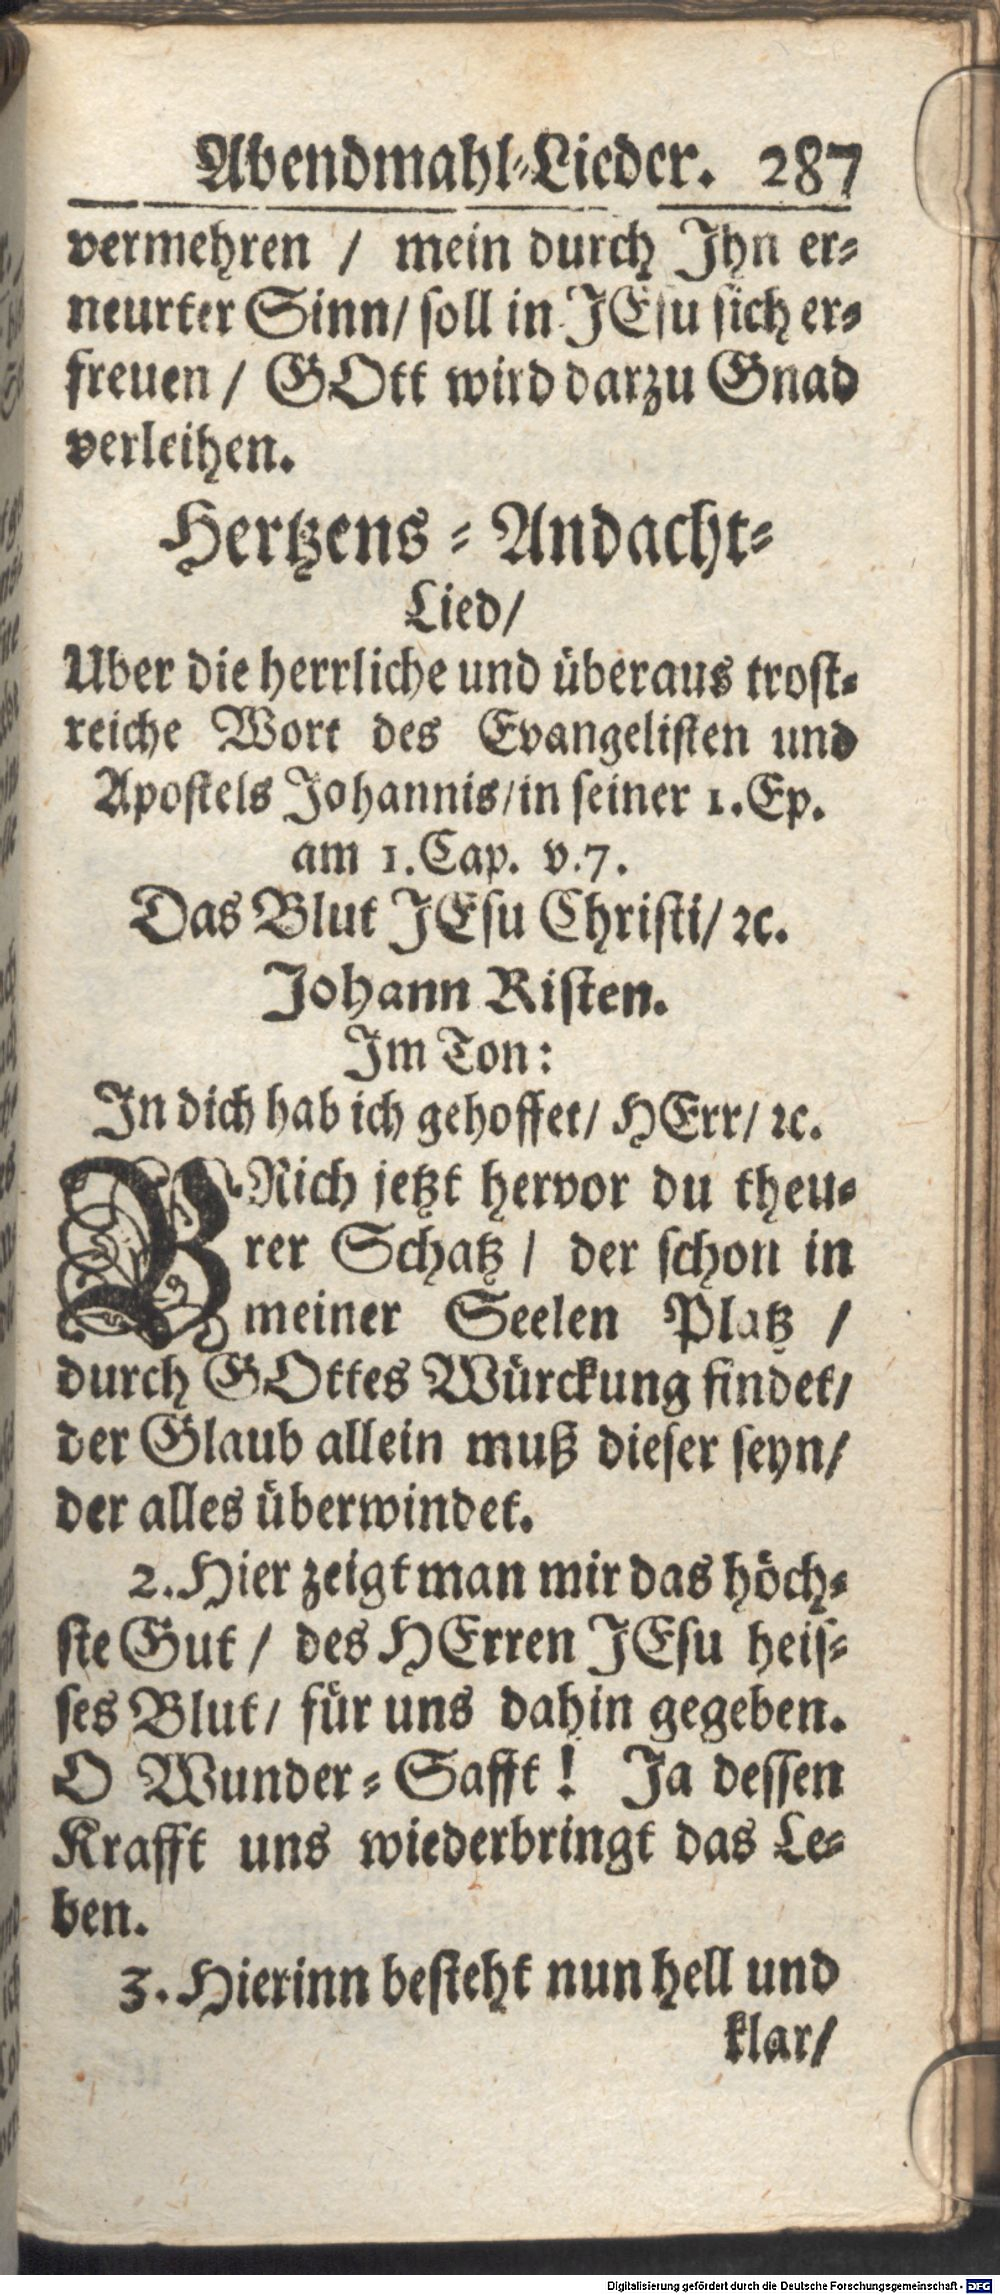 Abendmahl-Lieder. 287
vermehren / mein durch Jhn er-
neurter Sinn/ soll in JEsu sich er-
freuen / GOtt wird darzu Gnad
verleihen.
Hertzens-Andacht-
Lied/
Uber die herrliche und überaus trost-
reiche Wort des Evangelisten und
Apostels Johannis/in seiner 1.Ep.
am 1.Cap. v.7.
Das Blut JEsu Christi/ ꝛc.
Johann Risten.
Jm Ton:
Jn dich hab ich gehoffet/ HErr/ ꝛc.
BRich jetzt hervor du theu-
rer Schatz / der schon in
meiner Seelen Platz /
durch GOttes Würckung findet/
der Glaub allein muß dieser seyn/
der alles überwindet.
2. Hier zeigt man mir das höch-
ste Gut / des HErren JEsu heis-
ses Blut/ für uns dahin gegeben.
O Wunder-Safft! Ja dessen
Krafft uns wiederbringt das Le-
ben.
3. Hierinn besteht nun hell und
klar/
Digitalisierung gefördert durch die Deutsche Forschungsgemeinschaft - DFG